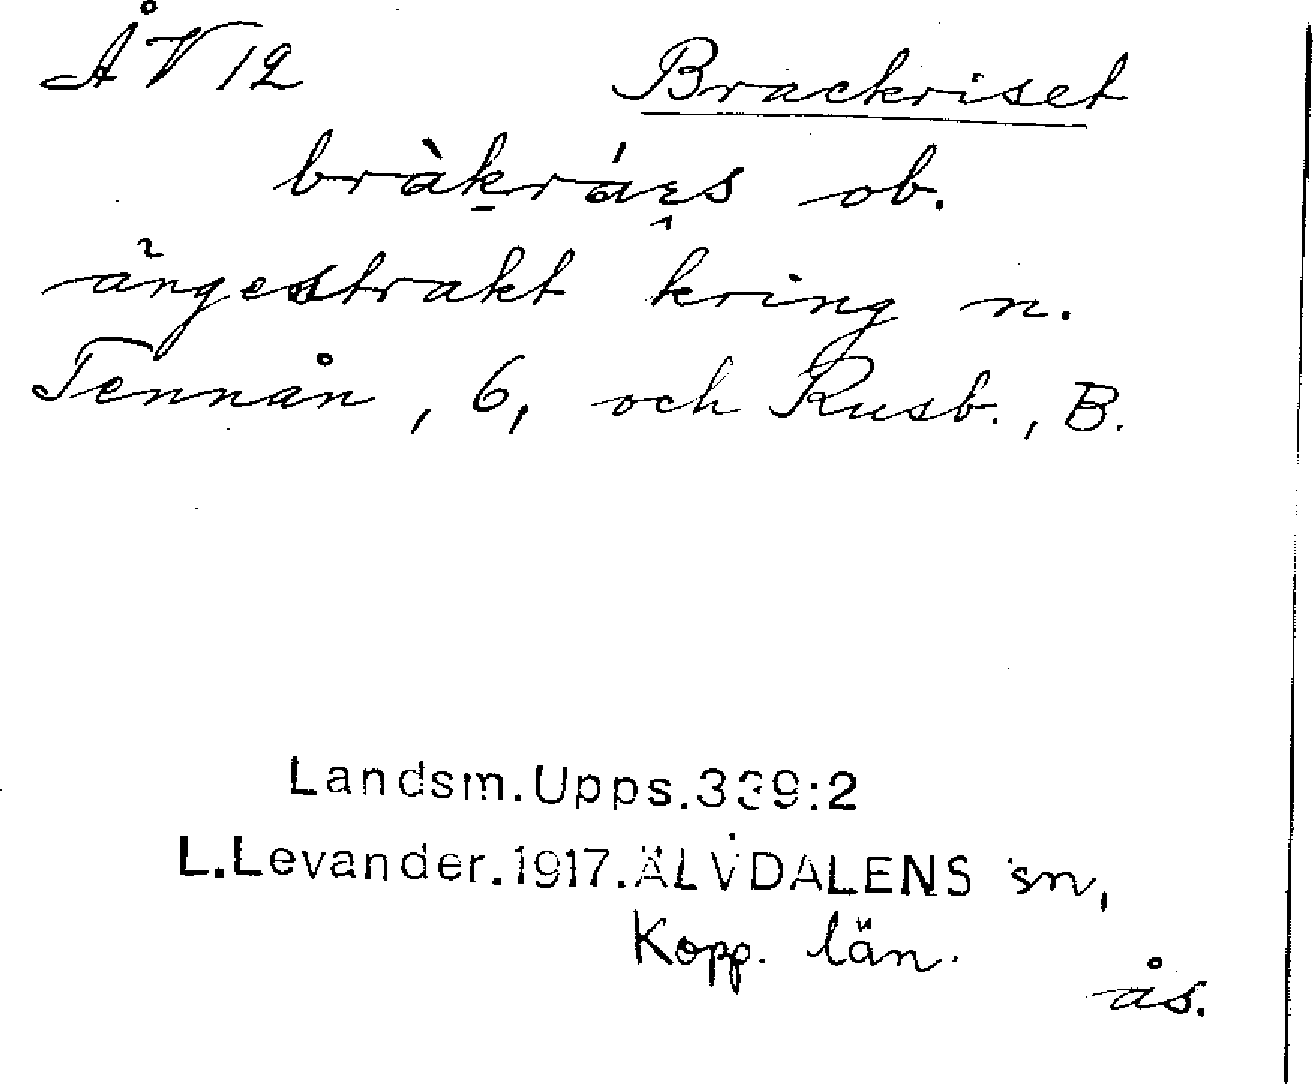 ÅV 12 Brackriset
bràk̠ráɛ̯s ob.
ängestrakt kring n.
Tennån, 6, och Rusb., B.
Landsm.Upps.339:2
L.Levander.1917.ÄLVDALENS sn,
Kopp. län.
ås.